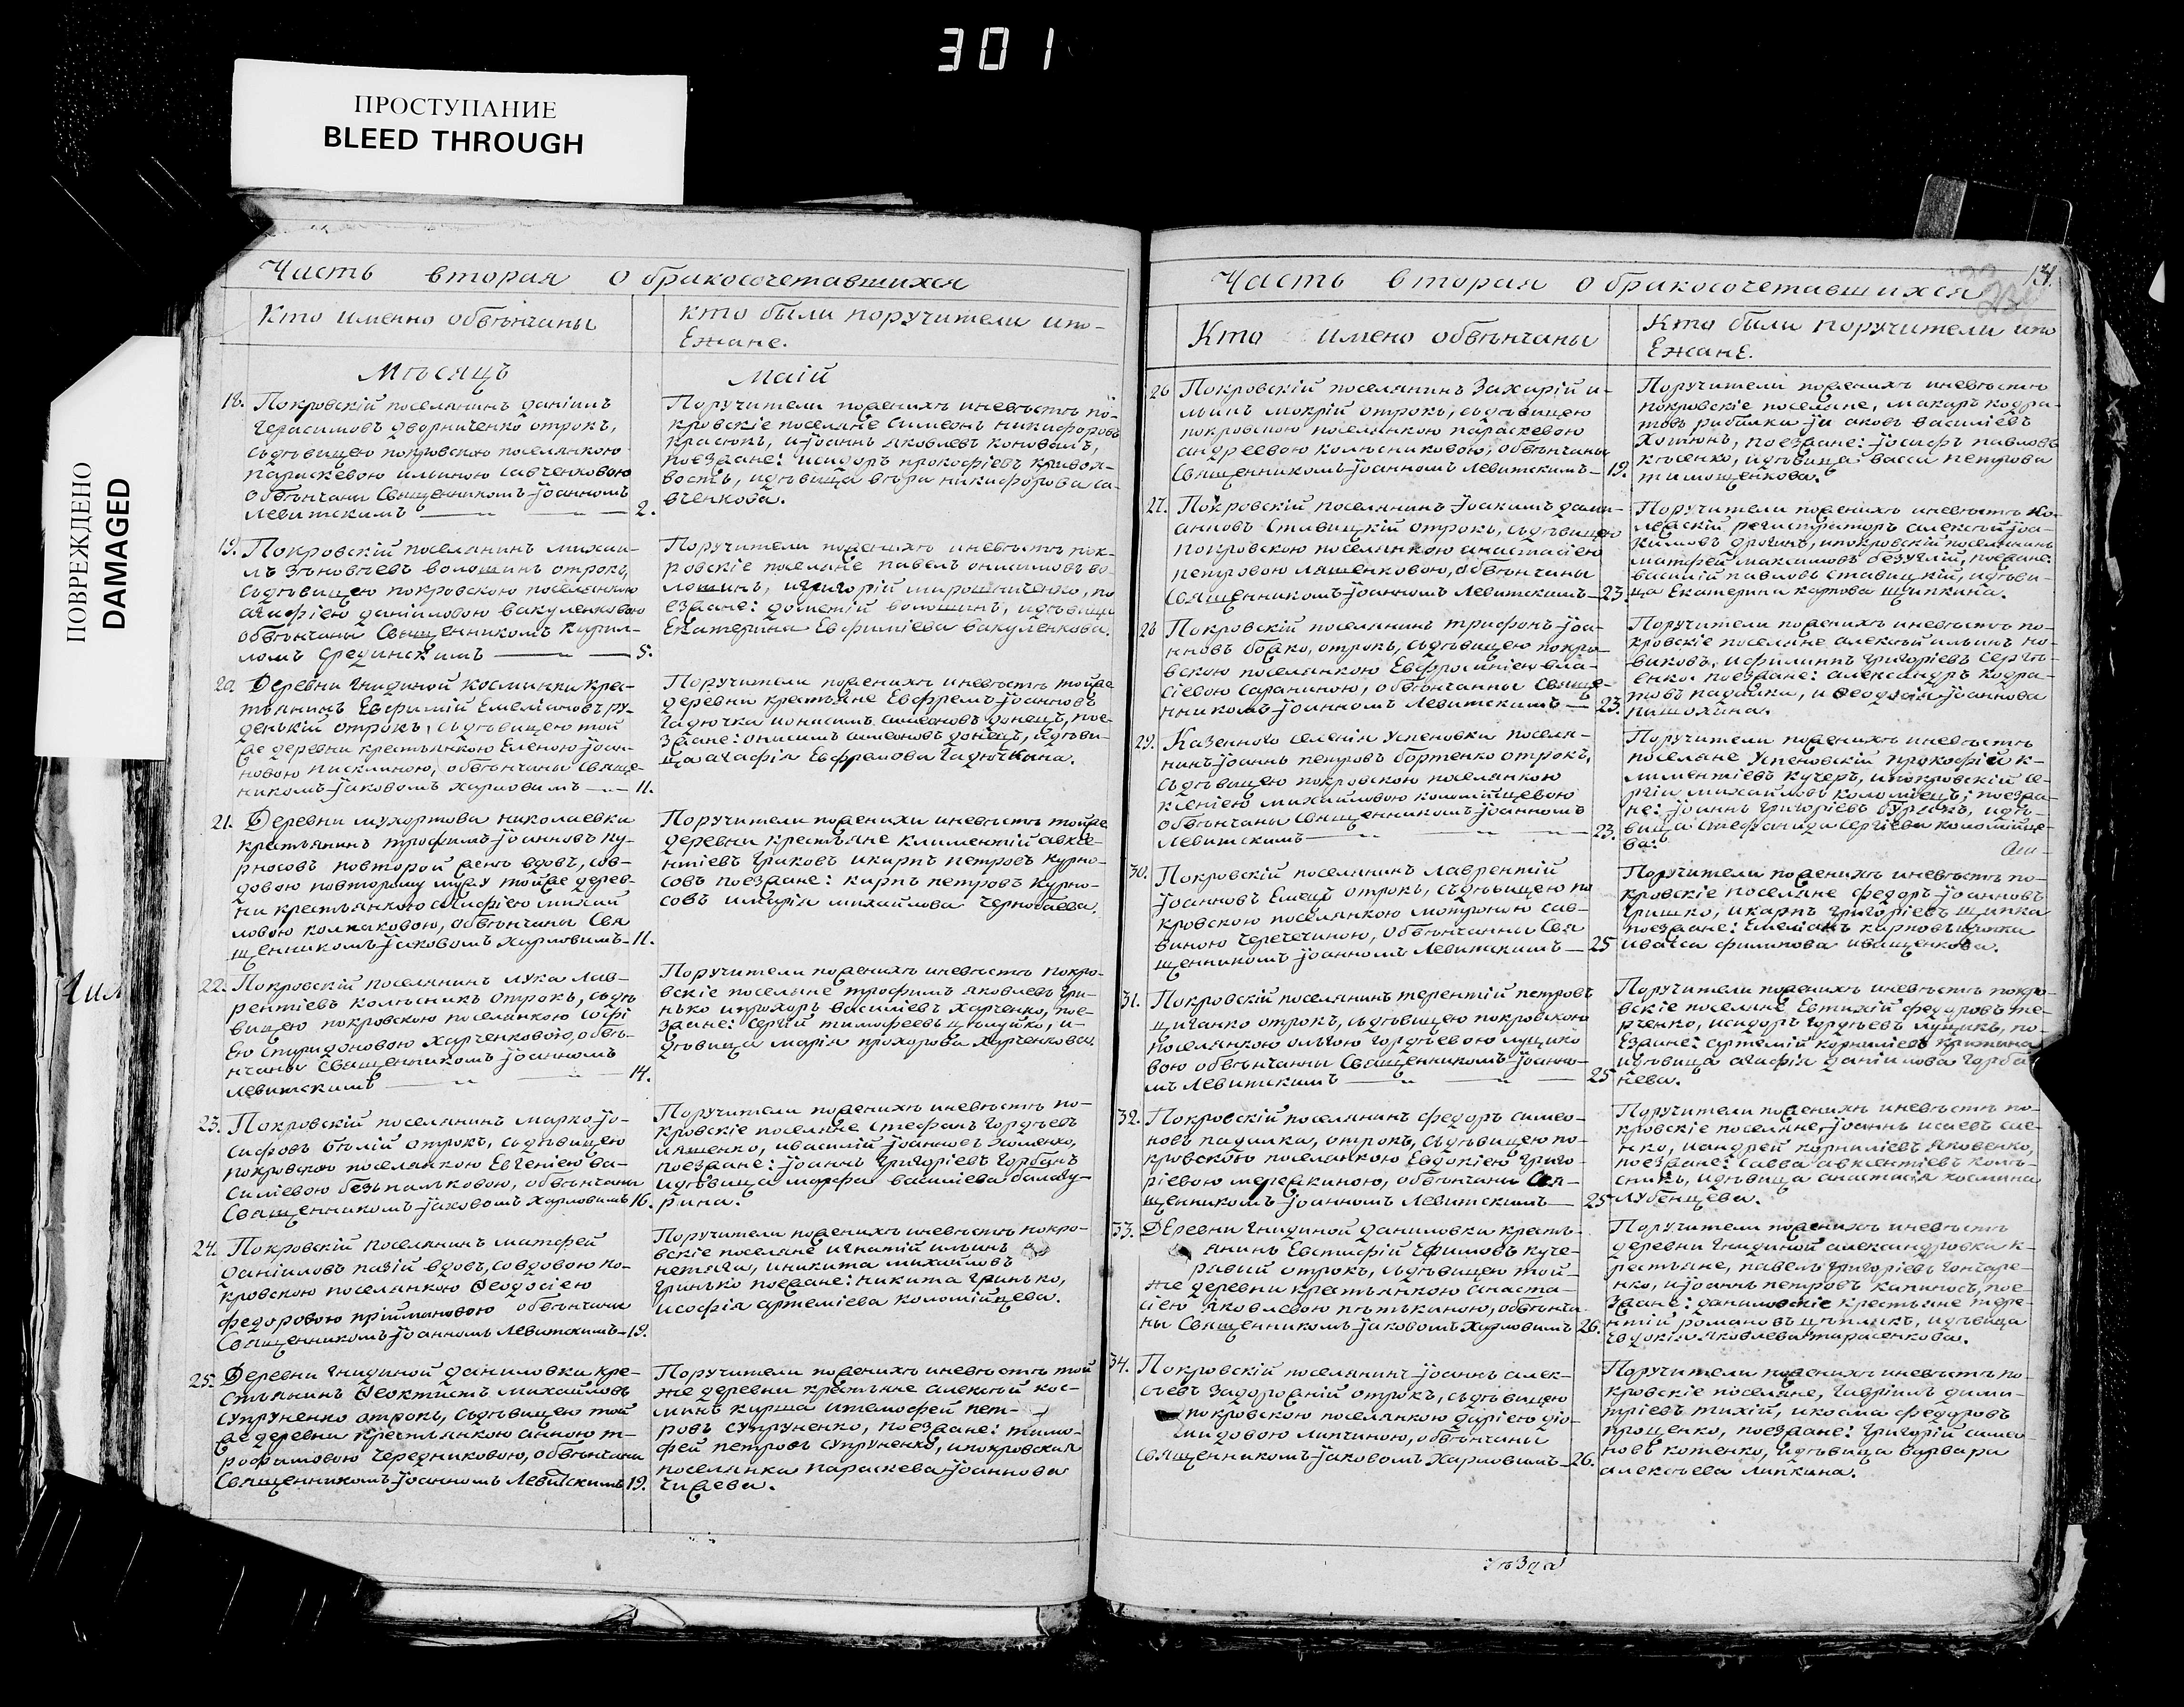 301
ПРОСТУПАНИЕ
BLEED THROUGH
ПОВРЕЖДЕНО
DAMAGED
Часть вторая о бракосочетавшихся
Кто именно обвѣнчаны
Кто были поручители ипо-
Езжане.
Мѣсяцъ Маій
18. Покровскій поселянинъ даніилъ
Герасимовъ дворниченко отрокъ,
съдѣвицею покровскою поселянкою
параскевою ильиною савченковою
обвѣнчаны Священникомъ Іоанномъ
Левитскимъ 2.
Поручители поженихѣ иневѣстѣ по-
кровскіе поселяне Симеонъ никифоровъ
красюкъ, и Іоаннъ яковлевъ коновалъ,
поезжане: исидоръ прокофіевъ кривох-
востъ, идѣвица вѣра никифорова са-
вченкова.
19. Покровскій поселянинъ михаи-
лъ Зѣновіевъ волошинъ отрокъ,
съдѣвицею покровскою поселянкою
агафіею даніиловою вакуленковою
обвѣнчаны Священникомъ Кирил-
ломъ Срединскимъ 5.
Поручители поженихѣ иневѣстѣ пок-
ровскіе поселяне павелъ онисимовъ во-
лошинъ, игригорій мирошниченко, по
езжане: дометій волошинъ, идѣвица
Екатерина Евфиміева вакуленкова.
20. Деревни гнидиной космински крес-
тьянинъ Евфимій Емеліановъ ру-
денькій отрокъ, съдѣвицею той
же деревни крестьянкою Еленою Іоан-
новою пискликою, обвѣнчаны Свяще-
никомъ Іаковомъ Харловимъ 11.
Поручители поженихѣ иневѣстѣ тойже
деревни крестьяне Евфремъ Іоанновъ
гадючка ионисимъ симеоновъ донецъ, пое-
зжане: онисимъ симеоновъ донецъ, идѣви-
ца агафія Евфремова гадючкина.
21. Деревни мухортова николаевки
крестьянинъ трофимъ Іоанновъ ку-
рносовъ повторой женѣ вдовъ, совъ-
довою повторому мужу тойже дерев-
ни крестьянкою агафіею михаи
ловою колпаковою, обвѣнчаны Свя
щенникомъ Іаковомъ Харловимъ 11.
Поручители поженихи иневѣстѣ тойже
деревни крестьяне климентій авксе-
нтіевъ граковъ икарпъ петровъ курно-
совъ поезжане: карпъ петровъ курно-
совъ имарія михайлова чернобаева.
22. Покровскій поселянинъ лука лав-
рентіевъ колѣсникъ отрокъ, съдѣ
вицею покровскою поселянкою софі
ею спиридоновою Харченковою, обвѣ-
нчаны Священникомъ Іоанномъ
Левитскимъ 14.
Поручители поженихѣ иневѣстѣ покро-
вскіе поселяне трофимъ яковлевъ гри-
нько ипрохоръ василіевъ Харченко, пое-
зжане: сергій тимофеевъ цюцюко, и-
дѣвица марія прохорова Харченкова.
23. Покровскій поселянинъ марко Іо-
сифовъ бѣлій отрокъ, съдѣвицею
покровскою поселянкою Евгеніею ва-
силіевою безъпальковою, обвѣнчаны
Священникомъ Іаковомъ Харловимъ 16.
Поручители поженихѣ иневѣстѣ по-
кровскіе поселяне Стефанъ гордѣевъ
ляшенко, ивасилій Іоанновъ хоменко,
поезжане: Іоаннъ григоріевъ горбунъ
идѣвица марфа василіева балагу-
рина.
24. Покровскій поселянинъ матфей
даніиловъ пазій вдовъ, совдовою по-
кровскою поселянкою Феодосіею
федоровою приймаковою обвѣнчаны
Священникомъ Іоанномъ Левитскимъ 19.
Поручители поженихѣ иневѣстѣ покро-
вскіе поселяне игнатій ильинъ
нетяга, иникита михайловъ
гринько поезжане: никита гринько,
исофія артеміева коломійцева.
25. Деревни гнидиной даниловки кре-
стьянинъ Феоктистъ михайловъ
супруненко отрокъ, съдѣвицею той
же деревни крестьянкою анною т-
рофимовою чередниковою, обвѣнчаны
Священникомъ Іоанномъ Левитскимъ 19.
Поручители поженихѣ иневѣстѣ той
же деревни крестьяне алексѣй кос-
минъ кирша итимофей пет-
ровъ супруненко, поезжане: тимо-
фей петровъ супруненко, ипокровская
поселянка параскева Іоаннова
чижева.
Часть вторая о бракосочетавшихся
Кто имено обвѣнчаны
Кто были поручители ипо
Езжане.
26 Покровскій поселянинъ Захарій и-
льинъ мокрій отрокъ, съдѣвицею
покровскою поселянкою параскевою
андреевою колѣсниковою, обвѣнчаны
Священникомъ Іоанномъ Левитскимъ 19.
Поручители поженихѣ иневѣстѣ
покровскіе поселяне, макаръ кодра-
товъ рибалка Іаковъ василіевъ
Хотюнъ, поезжане: Іосифъ павловъ
кѣсенко, идѣвица васса петрова
тимощенкова.
27. Покровскій поселянинъ Іоакимъ дами-
ановъ Ставицкій отрокъ, съдѣвицею
покровскою поселянкою анастасіею
петровою ляшенковою, обвѣнчаны
Священникомъ Іоанномъ Левитскимъ 23.
Поручители поженихѣ иневѣстѣ Ко-
лежскій регистраторъ алексѣй Іоа-
кимовъ дрогинъ, ипокровскій поселянинъ
матфей максимовъ безуглій, поезжане:
василій павловъ ставицкій, идѣви-
ца Екатерина карпова щипкина.
28 Покровскій поселянинъ трифонъ Іоа-
нновъ божко, отрокъ, съдѣвицею покро-
вскою поселянкою Евфросиніею вла-
сіевою сараниною, обвѣнчанны Свяще-
нникомъ Іоанномъ Левитскимъ 23.
Поручители поженихѣ иневѣстѣ по-
кровскіе поселяне алексѣй ильинъ но-
виковъ, ифилиппъ григоріевъ сергѣ-
енко поезжане: александръ кодра-
товъ падалка, и Феодосія Іоаннова
пишохина.
29. Казенного селенія Успеновки поселя-
нинъ Іоаннъ петровъ бортенко отрокъ,
съдѣвицею покровскою поселянкою
ксеніею михайловою коломійцевою
обвѣнчаны Священникомъ Іоанномъ
Левитскимъ 23.
Поручители поженихѣ иневѣстѣ
поселяне Успеновскій прокофій к-
лиментіевъ кучеръ, ипокровскій се-
ргій михайловъ коломіецъ; поезжа-
не: Іоаннъ григоріевъ бурякъ, идѣ-
вица стефанида сергіева коломійце-
ва.
30. Покровскій поселянинъ Лаврентій
Іоанновъ Емецъ отрокъ, съдѣвицею по
кровскою поселянкою мотроною сав-
виною черечечиною, обвѣнчанны Свя
щенникомъ Іоанномъ Левитскимъ 25
Поручители поженихѣ иневѣстѣ по-
кровскіе поселяне федоръ Іоанновъ
гришко, икарпъ григоріевъ щипка
поезжане: Емеліанъ карповъ щипка
ивасса филипова иващенкова.
31. Покровскій поселянинъ терентій петровъ
циганко отрокъ, съдѣвицею покровскою
поселянкою ольгою гордѣевою луцико
вою обвѣнчанны Священникомъ Іоанно-
мъ Левитскимъ 25
Поручители поженихѣ иневѣстѣ покро-
вскіе поселяне Евтихій федоровъ те-
рченко, исидоръ гордѣевъ луцикъ, по-
езжане: артемій корниліевъ крапина
идѣвица агафія даніилова горба
нева.
32. Покровскій поселянинъ федоръ симео-
новъ падалка, отрокъ, съдѣвицею по-
кровскою поселянкою Евдокіею григо-
ріевою мережкиною, обвѣнчаны Свя-
щенникомъ Іоанномъ Левитскимъ 25
Поручители поженихѣ иневѣстѣ по-
кровскіе поселяне, Іоаннъ исаевъ сае-
нко, иандрей корниліевъ яковенко,
поезжане: савва авксентіевъ колѣ-
сникъ, идѣвица анастасія космина
лубенцева.
33. Деревни гнидиной даниловки кресть-
янинъ Евстафій Ефимовъ куче-
рявий отрокъ, съдѣвицею той-
же деревни крестьянкою анаста-
сіею яковлевою пѣтькиною, обвѣнча-
ны Священникомъ Іаковомъ Харловимъ 26.
Поручители поженихѣ иневѣстѣ
деревни гнидиной александровки к-
рестьяне, павелъ григоріевъ гончаре-
нко, и Іоаннъ петровъ капиносъ, пое-
зжане: даниловскіе крестьяне тере-
нтій романовъ цѣпликъ, идѣвица
Евдокія яковлева тарасенкова.
34. Покровскій поселянинъ Іоаннъ алек-
сѣевъ задорожній отрокъ, съдѣвицею
покровскою поселянкою даріею діо-
мидовою липчиною, обвѣнчаны
Священникомъ Іаковомъ Харловимъ 26.
Поручители поженихѣ иневѣстѣ по-
кровскіе поселяне, гавріилъ дими-
тріевъ тихій, икосма федоровъ
прощенко, поезжане: григорій симео-
новъ котенко, идѣвица варвара
алексѣева липкина.
уѣзда